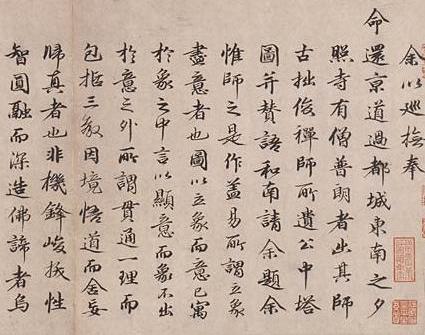 余以巡撫奉
命還京道過都城東南之夕
照寺有僧普朗者出其師
古拙俊禪師所遺公中塔
圖并贊語和南請余題余
惟師之是作蓋易所謂立象
盡意者也圖以立象而意已寓
於象之中言以顯意而象不出
於意之外所謂貫通一理而
包括三教因境悟道而舍妄
歸真者也非機鋒峻拔性
智圓融而深造佛諦者烏